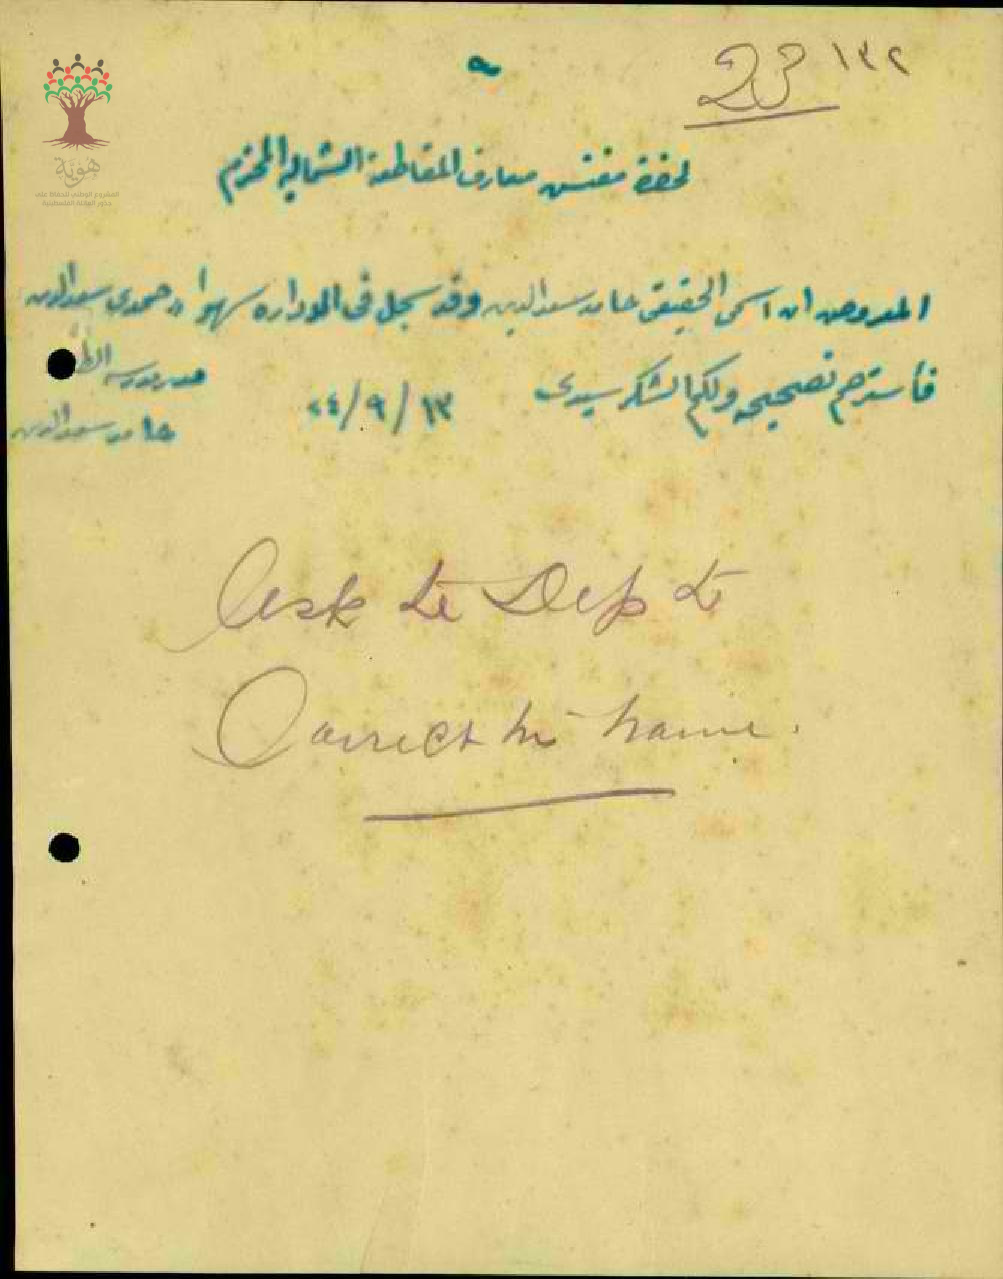 23 ١٣٢
هوية
المشروع الوطني للحفاظ على
جذور العائلة الفلسطينية
لحضرة مفتش معارف المقاطعة الشمالية المحترم
المعروض ان اسمي الحقيقي حامد سعد الدين وقد سجل في الادارة سهوا " حمدي سعد الدين
فأسترحم تصحيحه ولكم الشكر سيدي ١٣/٩/٢٤
مدرسة
حامد سعد الدين
Ask te Dep t
Correct his name.